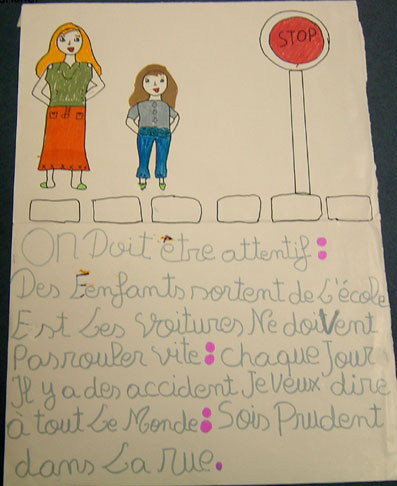 STOP
On Doit être attentif :
Des Eenfants sortent de L'école
Est Les Voitures Ne doiVent
Pas rouler vite : chaque Jour
Il y a des accident Je Veux dire
à tout Le Monde : Sois Prudent
dans La rue.